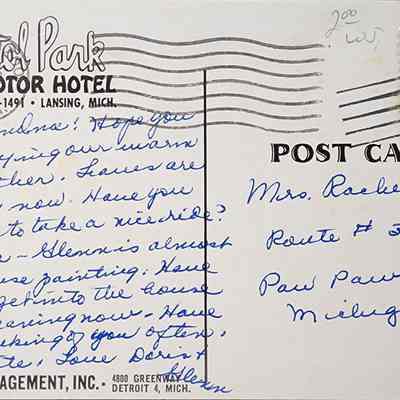 tol Park
OTOR HOTEL
-1491 • LANSING, MICH.
ndma! Hope you
ying our warm
ther. Leaves are
now. Have you
to take a nice ride?
e - Glenn is almost
use painting. Have
get into the house
eaning now - Have
nking of you often.
te, Love Doris &
Glenn
AGEMENT, INC. • 4800 GREENWAY
DETROIT 4, MICH.
2.00
POST CA
Mrs. Rache
Route # 3
Paw Paw
Michig